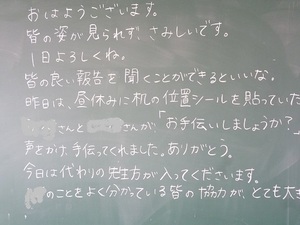 おはようございます。
皆の姿が見られず、さみしいです。
1日よろしくね。
皆の良い報告を聞くことができるといいな。
昨日は、昼休みに机の位置シールを貼っていた
さんと さんが「お手伝いしましょうか?
声をかけ、手伝ってくれました。ありがとう。
今日は代わりの先生方が入ってくださいます。
のことをよく分かっている皆の協力が、とても大き